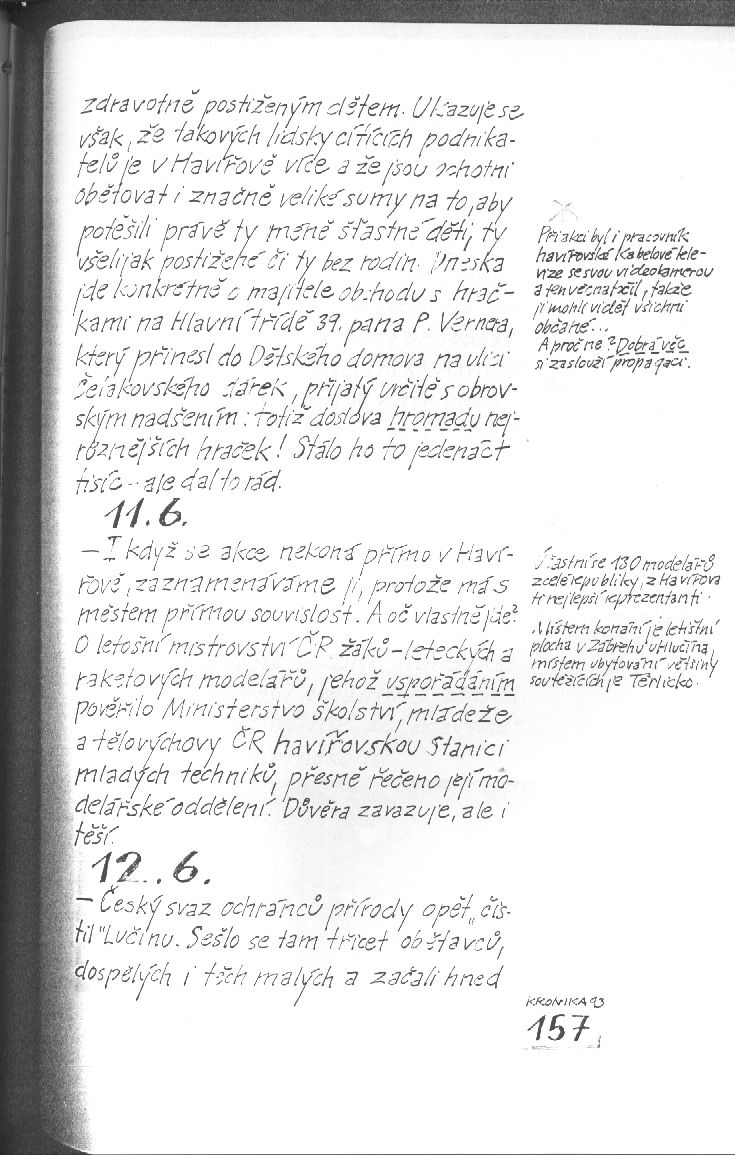 zdravotně postiženým dětem. Ukazuje se
však, že takových lidsky cítících podnika-
telů je v Havířově více a že jsou ochotni
obětovat i značně veliké sumy na to, aby
potěšili právě ty méně šťastné děti, ty
všelijak postižené či ty bez rodin. Dneska
jde konkrétně o majitele obchodu s hrač-
kami na Hlavní třídě 39. pana P. Vernera,
který přinesl do Dětského domova na ulici
Čelakovského dárek, přijatý určitě s obrov-
ským nadšením: totiž doslova hromadu nej-
různějších hraček! Stálo ho to jedenáct
tisíc - ale dal to rád.
11. 6.
- I když se akce nekoná přímo v Haví-
řově, zaznamenáváme ji, protože má s
městem přímou souvislost. A oč vlastně jde?
O letošní mistrovství ČR žáků - leteckých a
raketových modelářů, jehož uspořádáním
pověřilo Ministerstvo školství, mládeže
a tělovýchovy ČR havířovskou Stanici
mladých techniků, přesně řečeno její mo-
delářské oddělení. Důvěra zavazuje, ale i
těší.
12. 6.
- Český svaz ochránců přírody opět „čis-
til" Lučinu. Sešlo se tam třicet obětavců,
dospělých i těch malých a začali hned
Při akci byl i pracovník
havířovské Kabelové tele-
vize se svou videokamerou
a ten věc natočil, takže
ji mohli vidět všichni
občané...
A proč ne? Dobrá věc
si zaslouží propagaci.
Účastní se 130 modelářů
z celé republiky, z Havířova
tři nejlepší reprezentanti.
Místem konání je letištní
plocha v Zábřehu u Hlučína,
místem ubytování většiny
soutěžících je Těrlicko.
KRONIKA 93
157